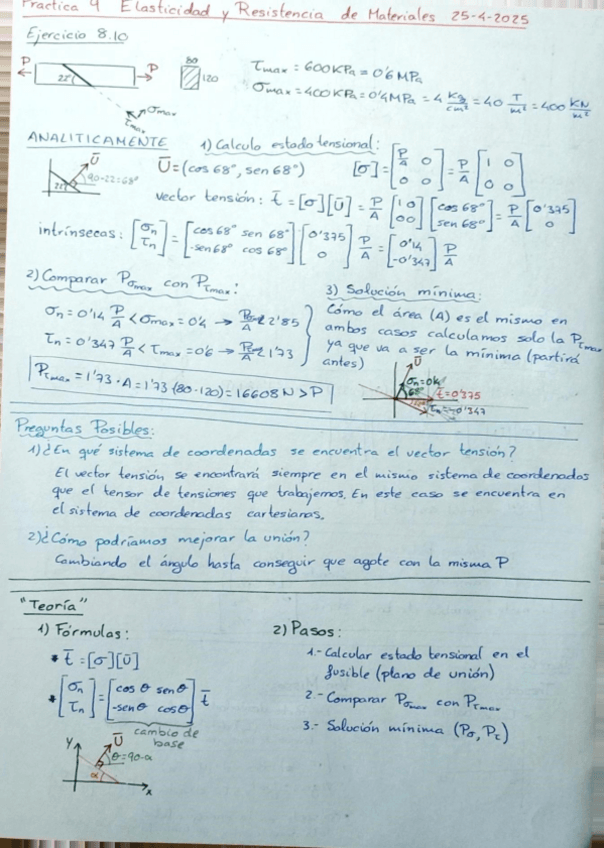 Practica 9 Elasticidad y Resistencia de Materiales 25-4-2025
Ejercicio 8.10
P P 22° 80 120
τmax = 600 KPa = 0'6 MPa
σmax = 400 KPa = 0'4 MPa = 4 Kg/cm² = 40 T/m² = 400 KN/m²
σmax
τmax
ANALITICAMENTE 1) Calculo estado tensional:
Ū 22° 90-22=68° Ū = (cos 68°, sen 68°) [σ] = [P/A 0; 0 0] = P/A [1 0; 0 0]
vector tensión: t̄ = [σ][Ū] = P/A [1 0; 0 0] [cos 68°; sen 68°] = P/A [0'375; 0]
intrínsecas: [σn; τn] = [cos 68° sen 68°; -sen 68° cos 68°] [0'375; 0] P/A = [0'14; -0'347] P/A
2) Comparar Pσmax con Pτmax:
σn = 0'14 P/A < σmax = 0'4 → P/A < 2'85
τn = 0'347 P/A < τmax = 0'6 → P/A < 1'73
Pτmax = 1'73 · A = 1'73 (80 · 120) = 16608 N > P
3) Solución mínima:
Cómo el área (A) es el mismo en
ambos casos calculamos solo la Pτmax
ya que va a ser la mínima (partirá
antes)
Ū
68°
t̄ = 0'375
τn = -0'347
Preguntas Posibles:
1) ¿En qué sistema de coordenadas se encuentra el vector tensión?
El vector tensión se encontrará siempre en el mismo sistema de coordenadas
que el tensor de tensiones que trabajemos. En este caso se encuentra en
el sistema de coordenadas cartesianas.
2) ¿Cómo podríamos mejorar la unión?
Cambiando el ángulo hasta conseguir que agote con la misma P
"Teoría"
1) Fórmulas:
* t̄ = [σ][Ū]
* [σn; τn] = [cos θ sen θ; -sen θ cos θ] t̄
cambio de
base
y Ū θ=90-α
α x
2) Pasos:
1.- Calcular estado tensional en el
fusible (plano de unión)
2.- Comparar Pσmax con Pτmax
3.- Solución mínima (Pσ, Pτ)